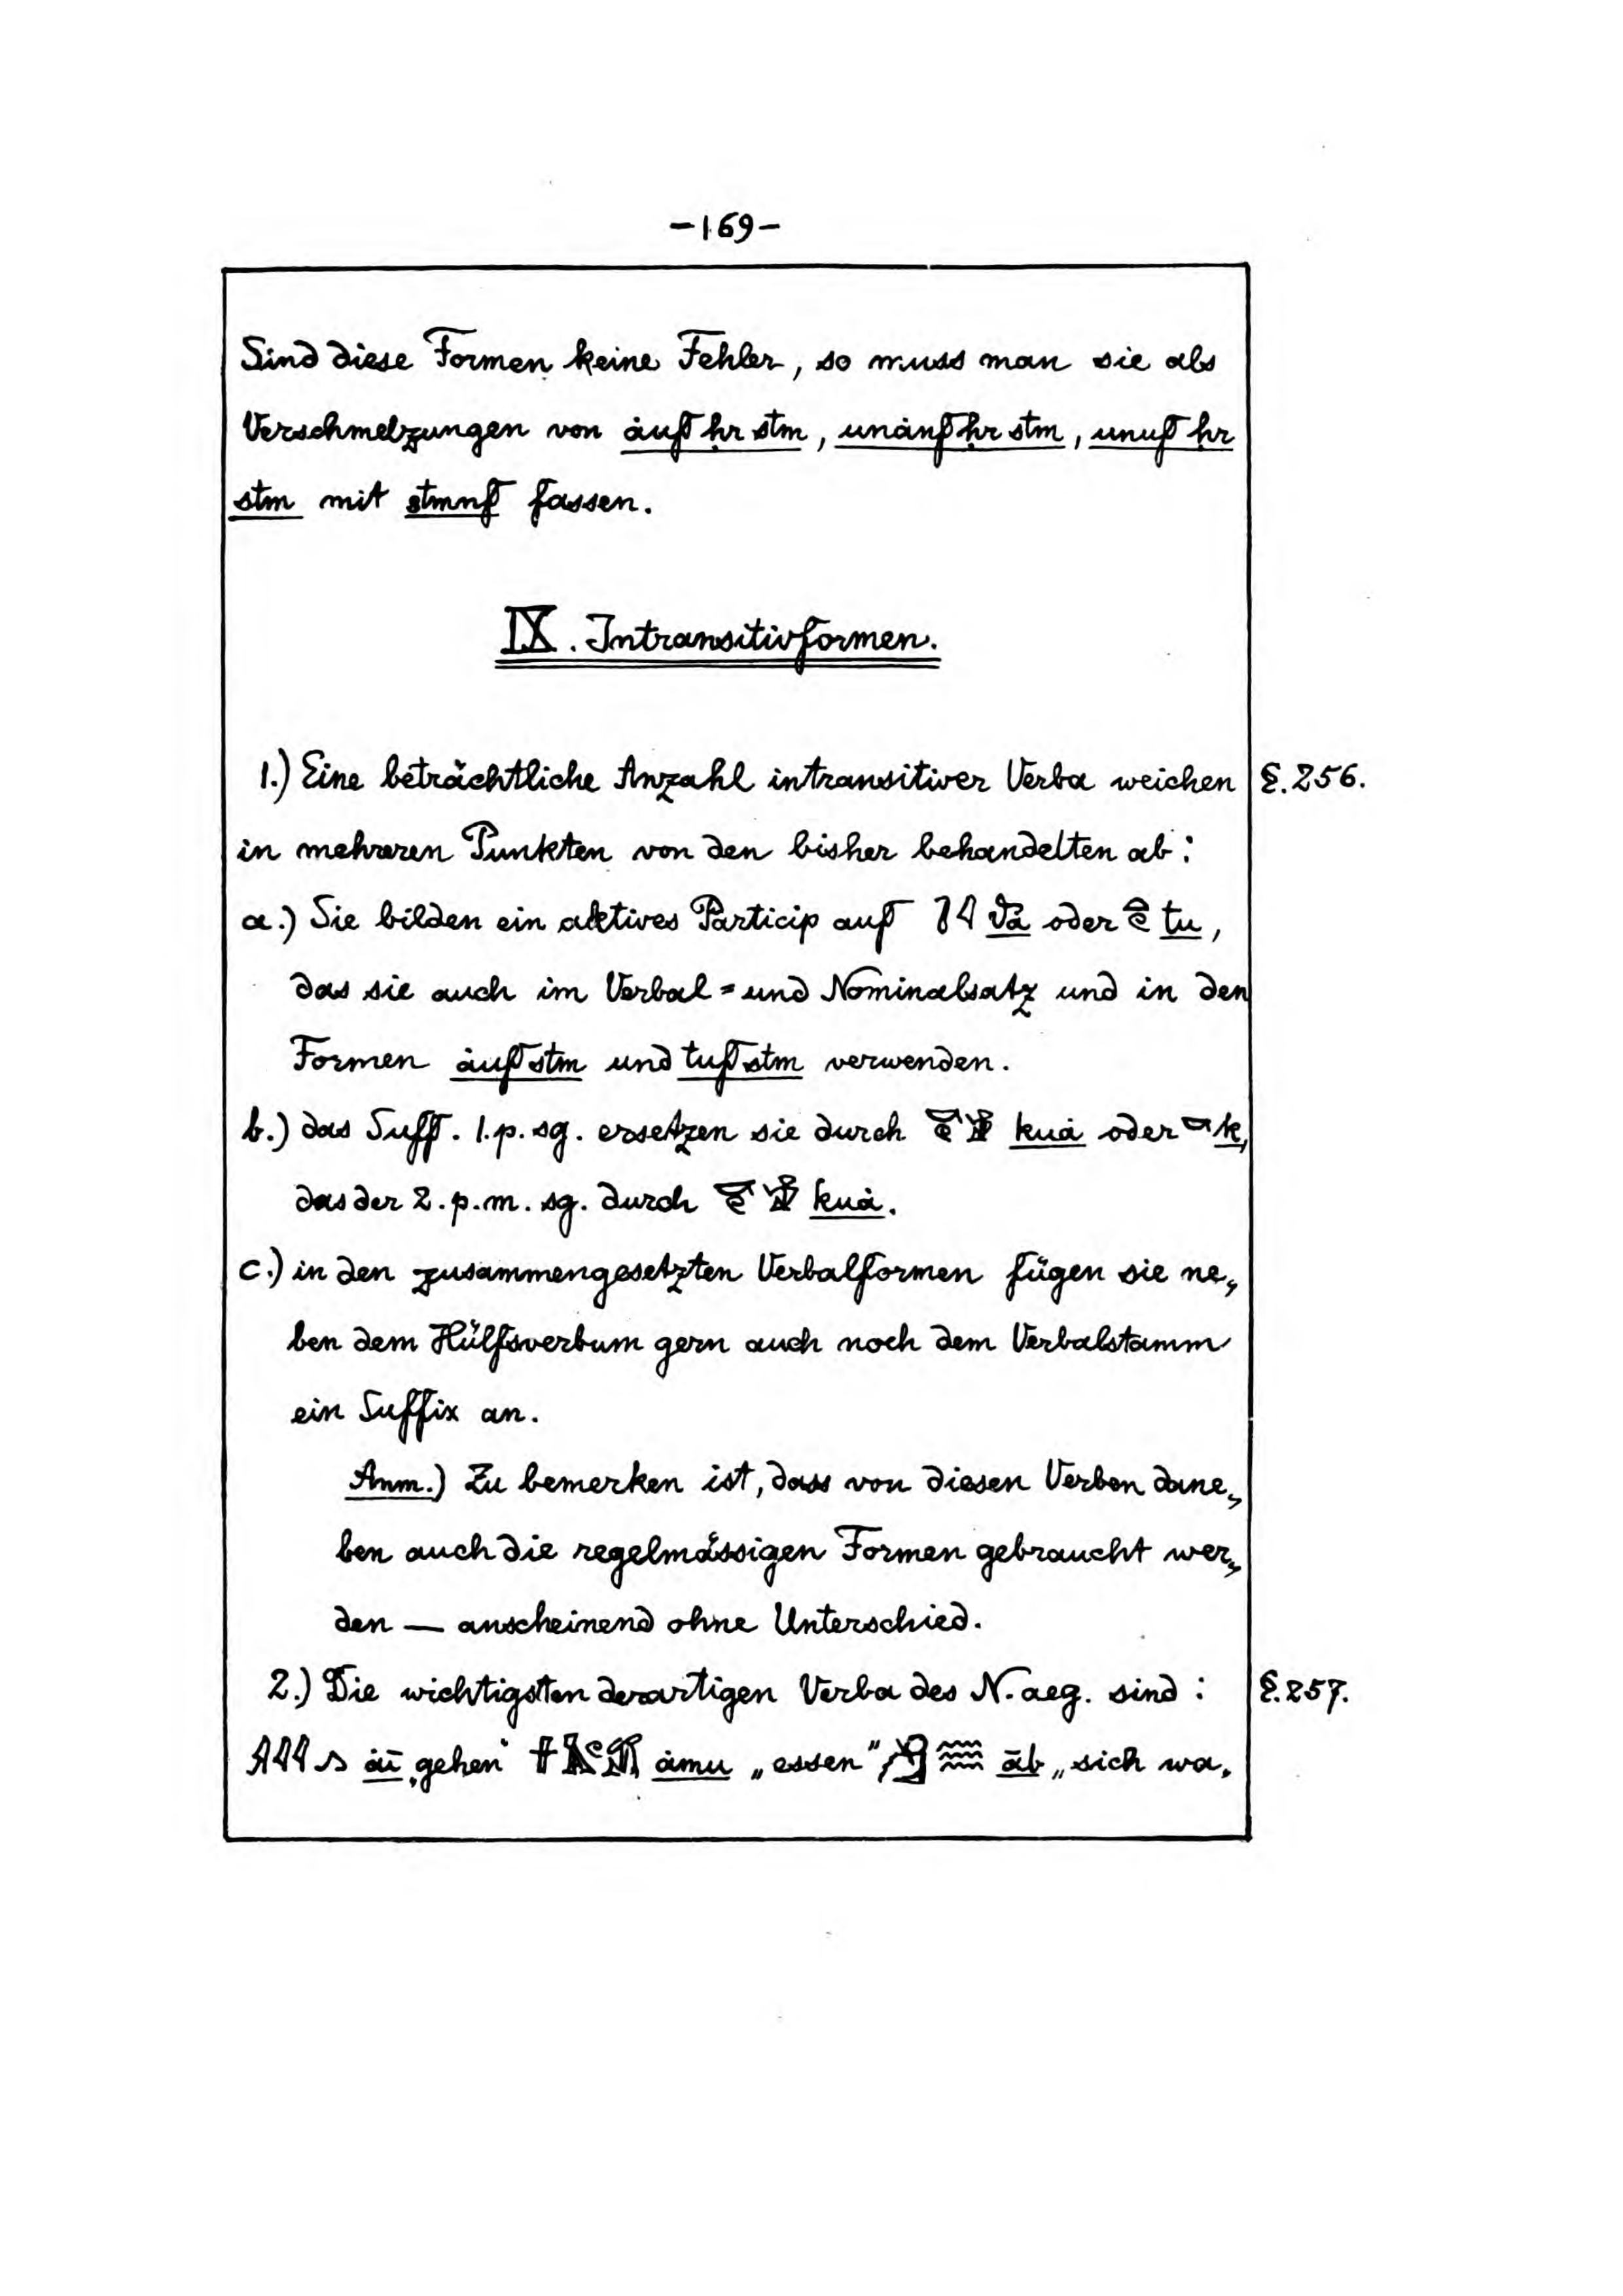 -169-
Sind diese Formen keine Fehler, so muss man sie als
Verschmelzungen von ȧuf ḥr stm, unȧnf ḥr stm, unuf ḥr
stm mit stmnf fassen.
IX. Intransitivformen.
1.) Eine beträchtliche Anzahl intransitiver Verba weichen §. 256.
in mehreren Punkten von den bisher behandelten ab:
a.) Sie bilden ein aktives Particip auf oder tu,
das sie auch im Verbal= und Nominalsatz und in den
Formen ȧuf stm und tuf stm verwenden.
b.) das Suff. 1. p. sg. ersetzen sie durch kuȧ oder k,
das der 2. p. m. sg. durch kuȧ.
c.) in den zusammengesetzten Verbalformen fügen sie ne„
ben dem Hülfsverbum gern auch noch dem Verbalstamm
ein Suffix an.
Anm.) Zu bemerken ist, dass von diesen Verben dane„
ben auch die regelmässigen Formen gebraucht wer„
den — anscheinend ohne Unterschied.
2.) Die wichtigsten derartigen Verba des N. aeg. sind: §. 257.
ȧī „gehen“ ȧmu „essen“ āb „sich wa„